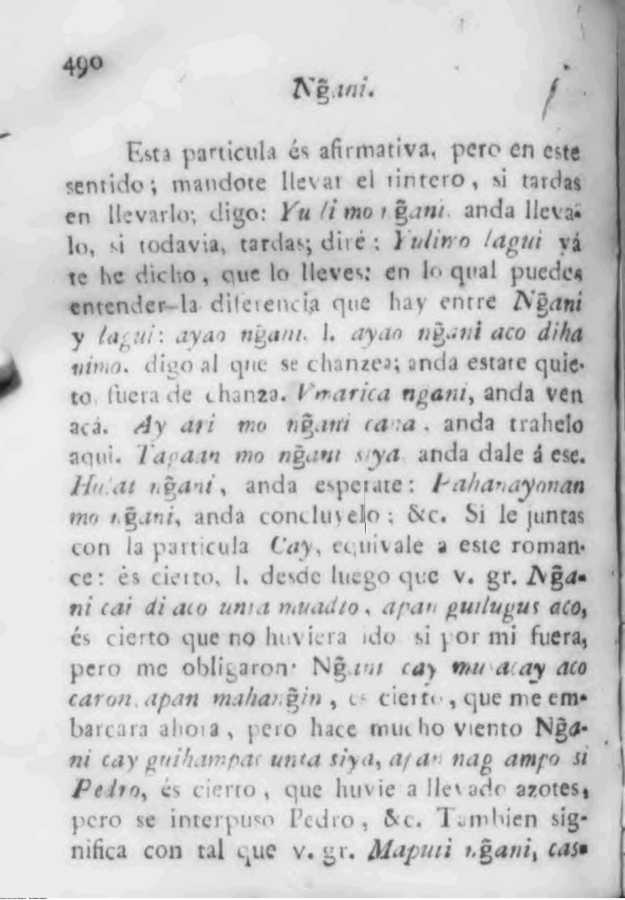 490
Ng̃ani.
Esta particula és afirmativa, pero en este
sentido; mandote llevar el tintero, si tardas
en llevarlo; digo: Yuli mo ng̃ani, anda lleva-
lo, si todavia, tardas; diré: Yulimo lagui yá
te he dicho, que lo lleves: en lo qual puedes
entender la diferencia que hay entre Ng̃ani
y lagui: ayao ng̃ani. l. ayao ng̃ani aco diha
nimo. digo al que se chanzea; anda estate quie-
to, fuera de chanza. Vmarica ngani, anda ven
acá. Ay ari mo ng̃ani cana, anda trahelo
aqui. Tagaan mo ng̃ani siya anda dale á ese.
Hulat ng̃ani, anda esperate: Pahanayonan
mo ng̃ani, anda concluyelo; &c. Si le juntas
con la particula Cay, equivale a este roman-
ce: és cierto, l. desde luego que v. gr. Ng̃a-
ni cai di aco unta muadto, apan guilugus aco,
és cierto que no huviera ido si por mi fuera,
pero me obligaron: Ng̃ani cay aco
caron, apan mahang̃in, es cierto, que me em-
barcara ahora, pero hace mucho viento Ng̃a-
ni cay guihampac unta siya, apan nag ampo si
Pedro, és cierto, que huvie a llevado azotes,
pero se interpuso Pedro, &c. Tambien sig-
nifica con tal que v. gr. Maputi ng̃ani, cas-